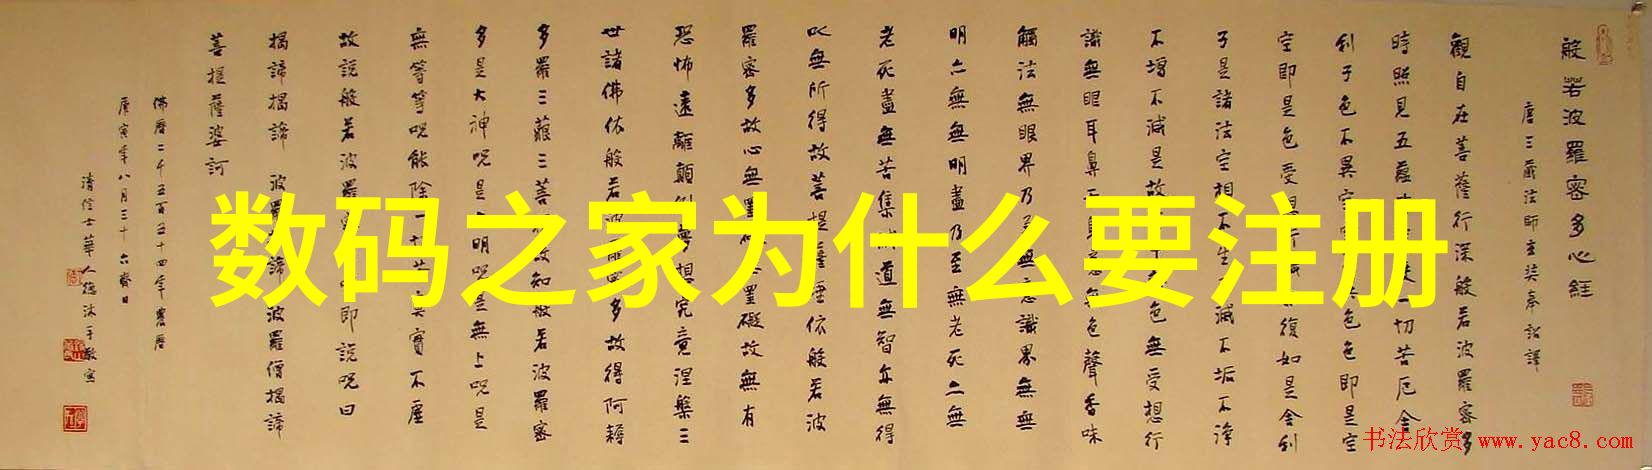 般若波羅密多心經
唐三藏法師玄奘奉詔譯
觀自在菩薩行深般若波羅密多
時照見五蘊 一切苦厄舍
利子色不異空 色色即是空
空即是色受想行 復如是舍利
子是諸法空相不生不滅不垢不淨
不增不減是故 色無受想行
識無眼耳鼻舌身意無色聲香味
觸法無眼界乃至無意識界無無
明亦無無明盡乃至無老死亦無
老死盡無苦集滅道無智亦無得
以無所得故菩提薩埵依般若波
羅密多故心無罣礙無罣礙故無有
恐怖遠離顛倒夢想究竟涅槃三
世諸佛依般若波羅密多故得阿耨
多羅三藐三菩提故知般若波羅密
多是大神呪是大明呪是無上呪是
無等等呪能除一切苦真實不虛
故說般若波羅密 即說呪曰
揭諦揭諦 波羅揭諦 波羅僧揭諦
菩提薩婆訶
佛曆二千五百五十四年農曆
庚寅年八月三十六齋日
清信士華人德沐手敬寫
数码之家为什么要注册
书法欣赏 www.yac8.com